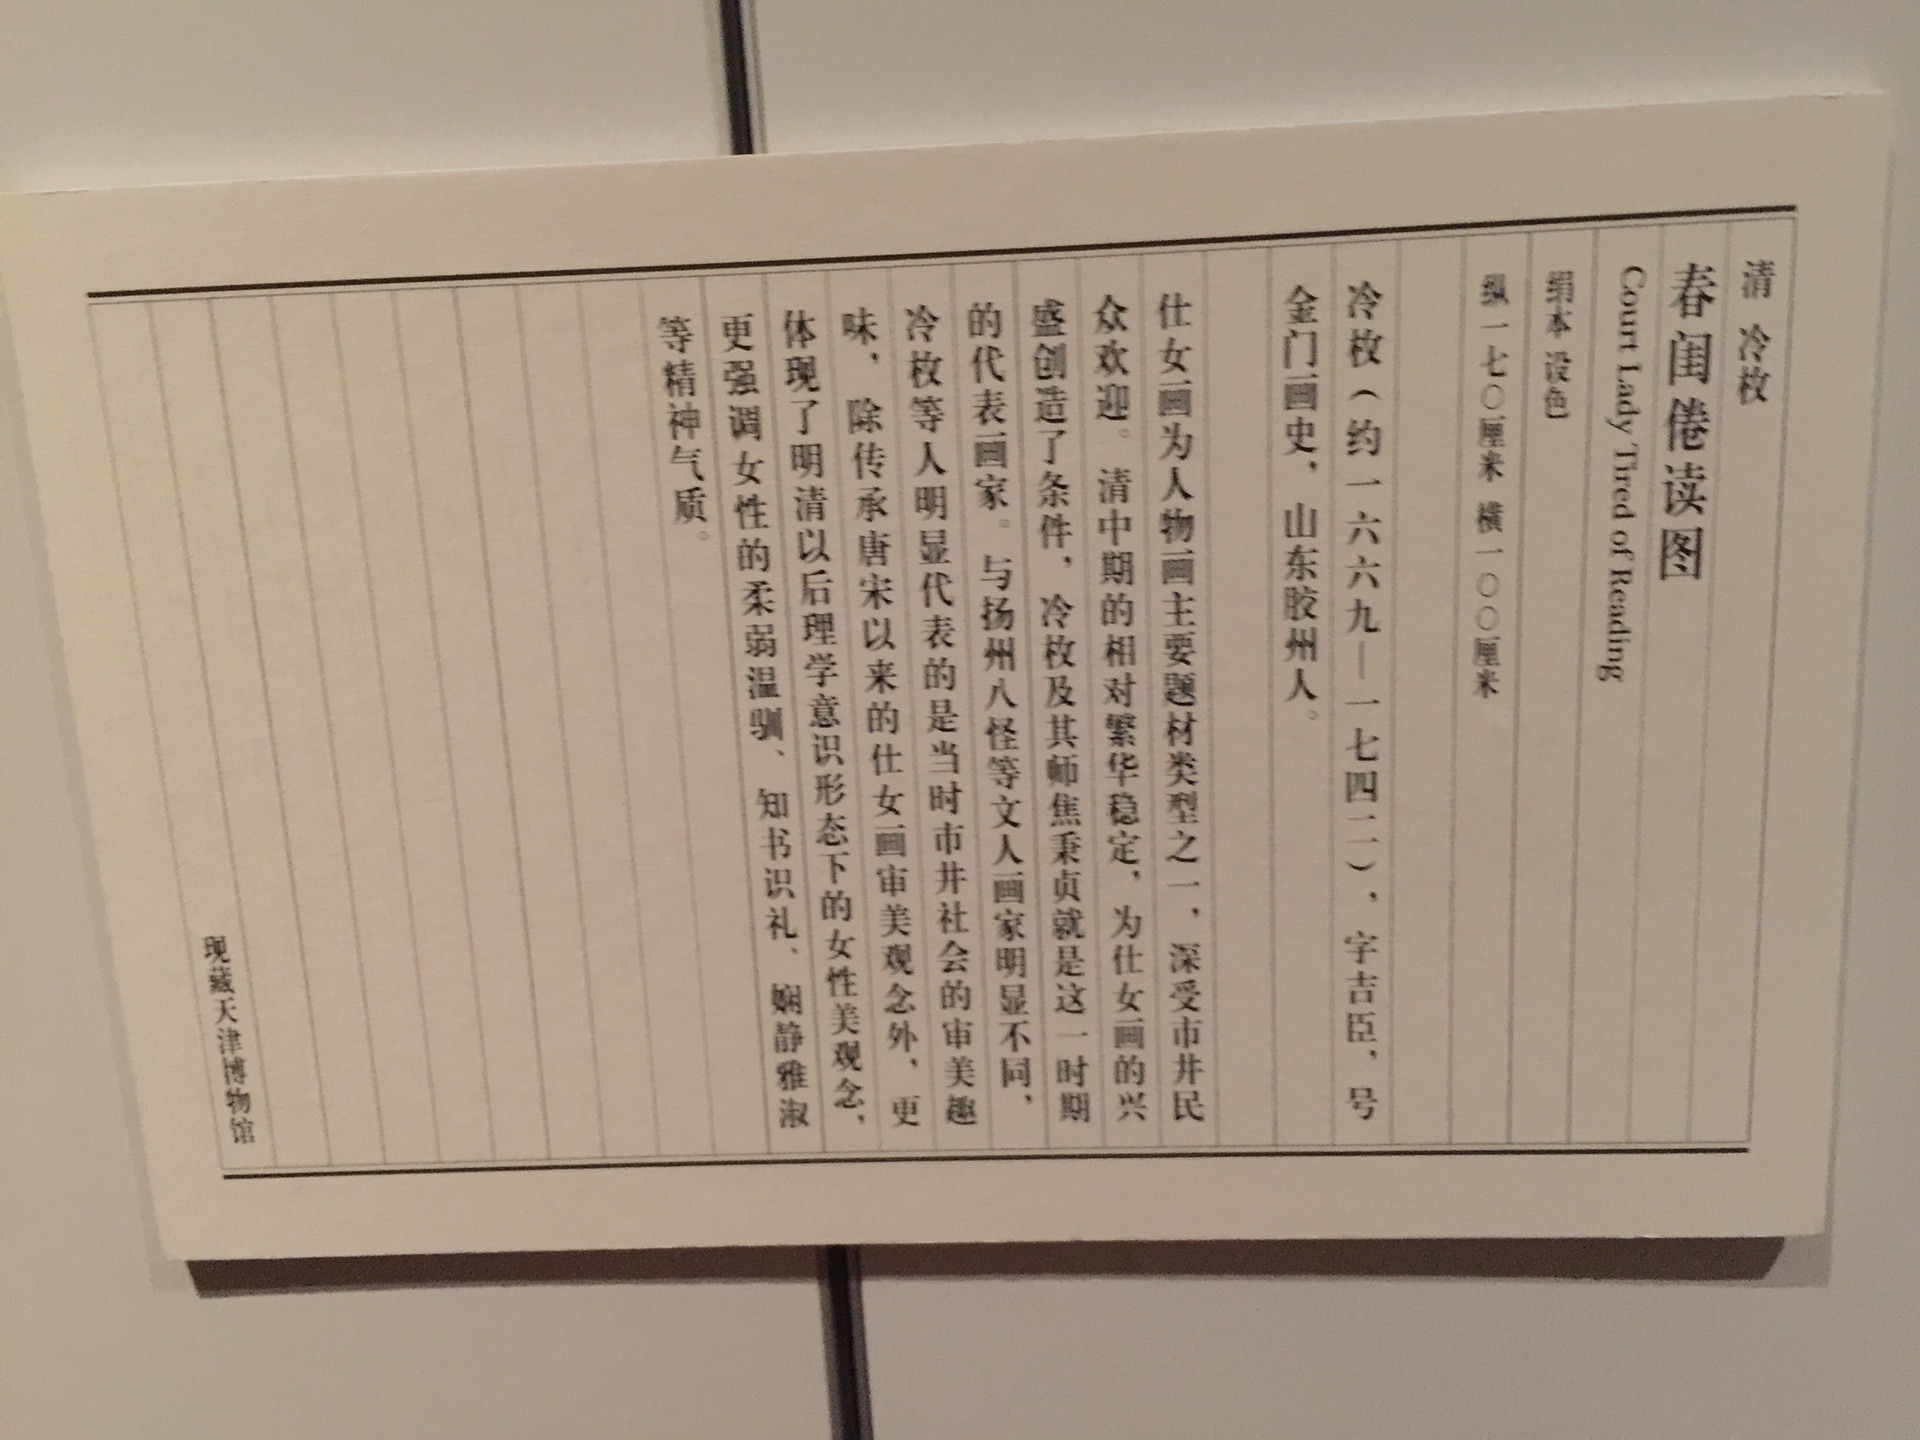 清 冷枚
春闺倦读图
Court Lady Tired of Reading
绢本 设色
纵一七〇厘米 横一〇〇厘米
冷枚（约一六六九—一七四二），字吉臣，号
金门画史，山东胶州人。
仕女画为人物画主要题材类型之一，深受市井民
众欢迎。清中期的相对繁华稳定，为仕女画的兴
盛创造了条件，冷枚及其师焦秉贞就是这一时期
的代表画家。与扬州八怪等文人画家明显不同，
冷枚等人明显代表的是当时市井社会的审美趣
味，除传承唐宋以来的仕女画审美观念外，更
体现了明清以后理学意识形态下的女性美观念，
更强调女性的柔弱温驯、知书识礼、娴静雅淑
等精神气质。
现藏天津博物馆